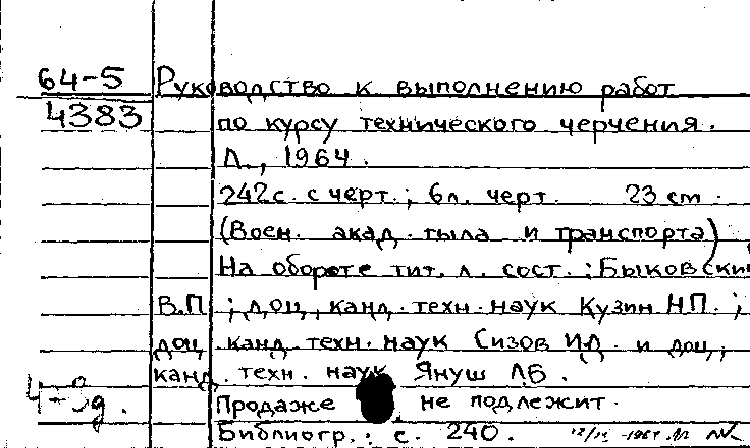 64-5 Руководство к выполнению работ
4383 по курсу технического черчения.
Л., 1964.
242с. с черт.; 6л. черт. 23 cm.
(Воен. акад. тыла и транспорта)
На обороте тит. л. сост.: Быковский
В.П.; доц., канд. техн. наук Кузин Н.П.;
доц. канд. техн. наук Сизов И.Д. и доц.,
канд. техн. наук Януш Л.Б.
Продаже не подлежит.
Библиогр.: с. 240.